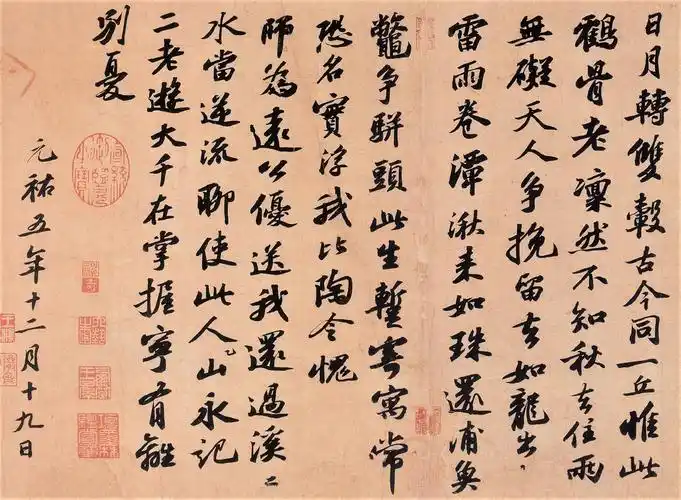 日月轉雙轂古今同一丘惟此
鶴骨老凛然不知秋去住兩
無礙天人争挽留去如龍出
雷雨卷潭湫来如珠還浦魚
鼈争駢頭此生暫寄寓常
恐名實浮我比陶令愧
師為遠公優送我還過溪〻
水當逆流聊使此人山永記
二老遊大千在掌握寧有離
別憂
元祐五年十二月十九日